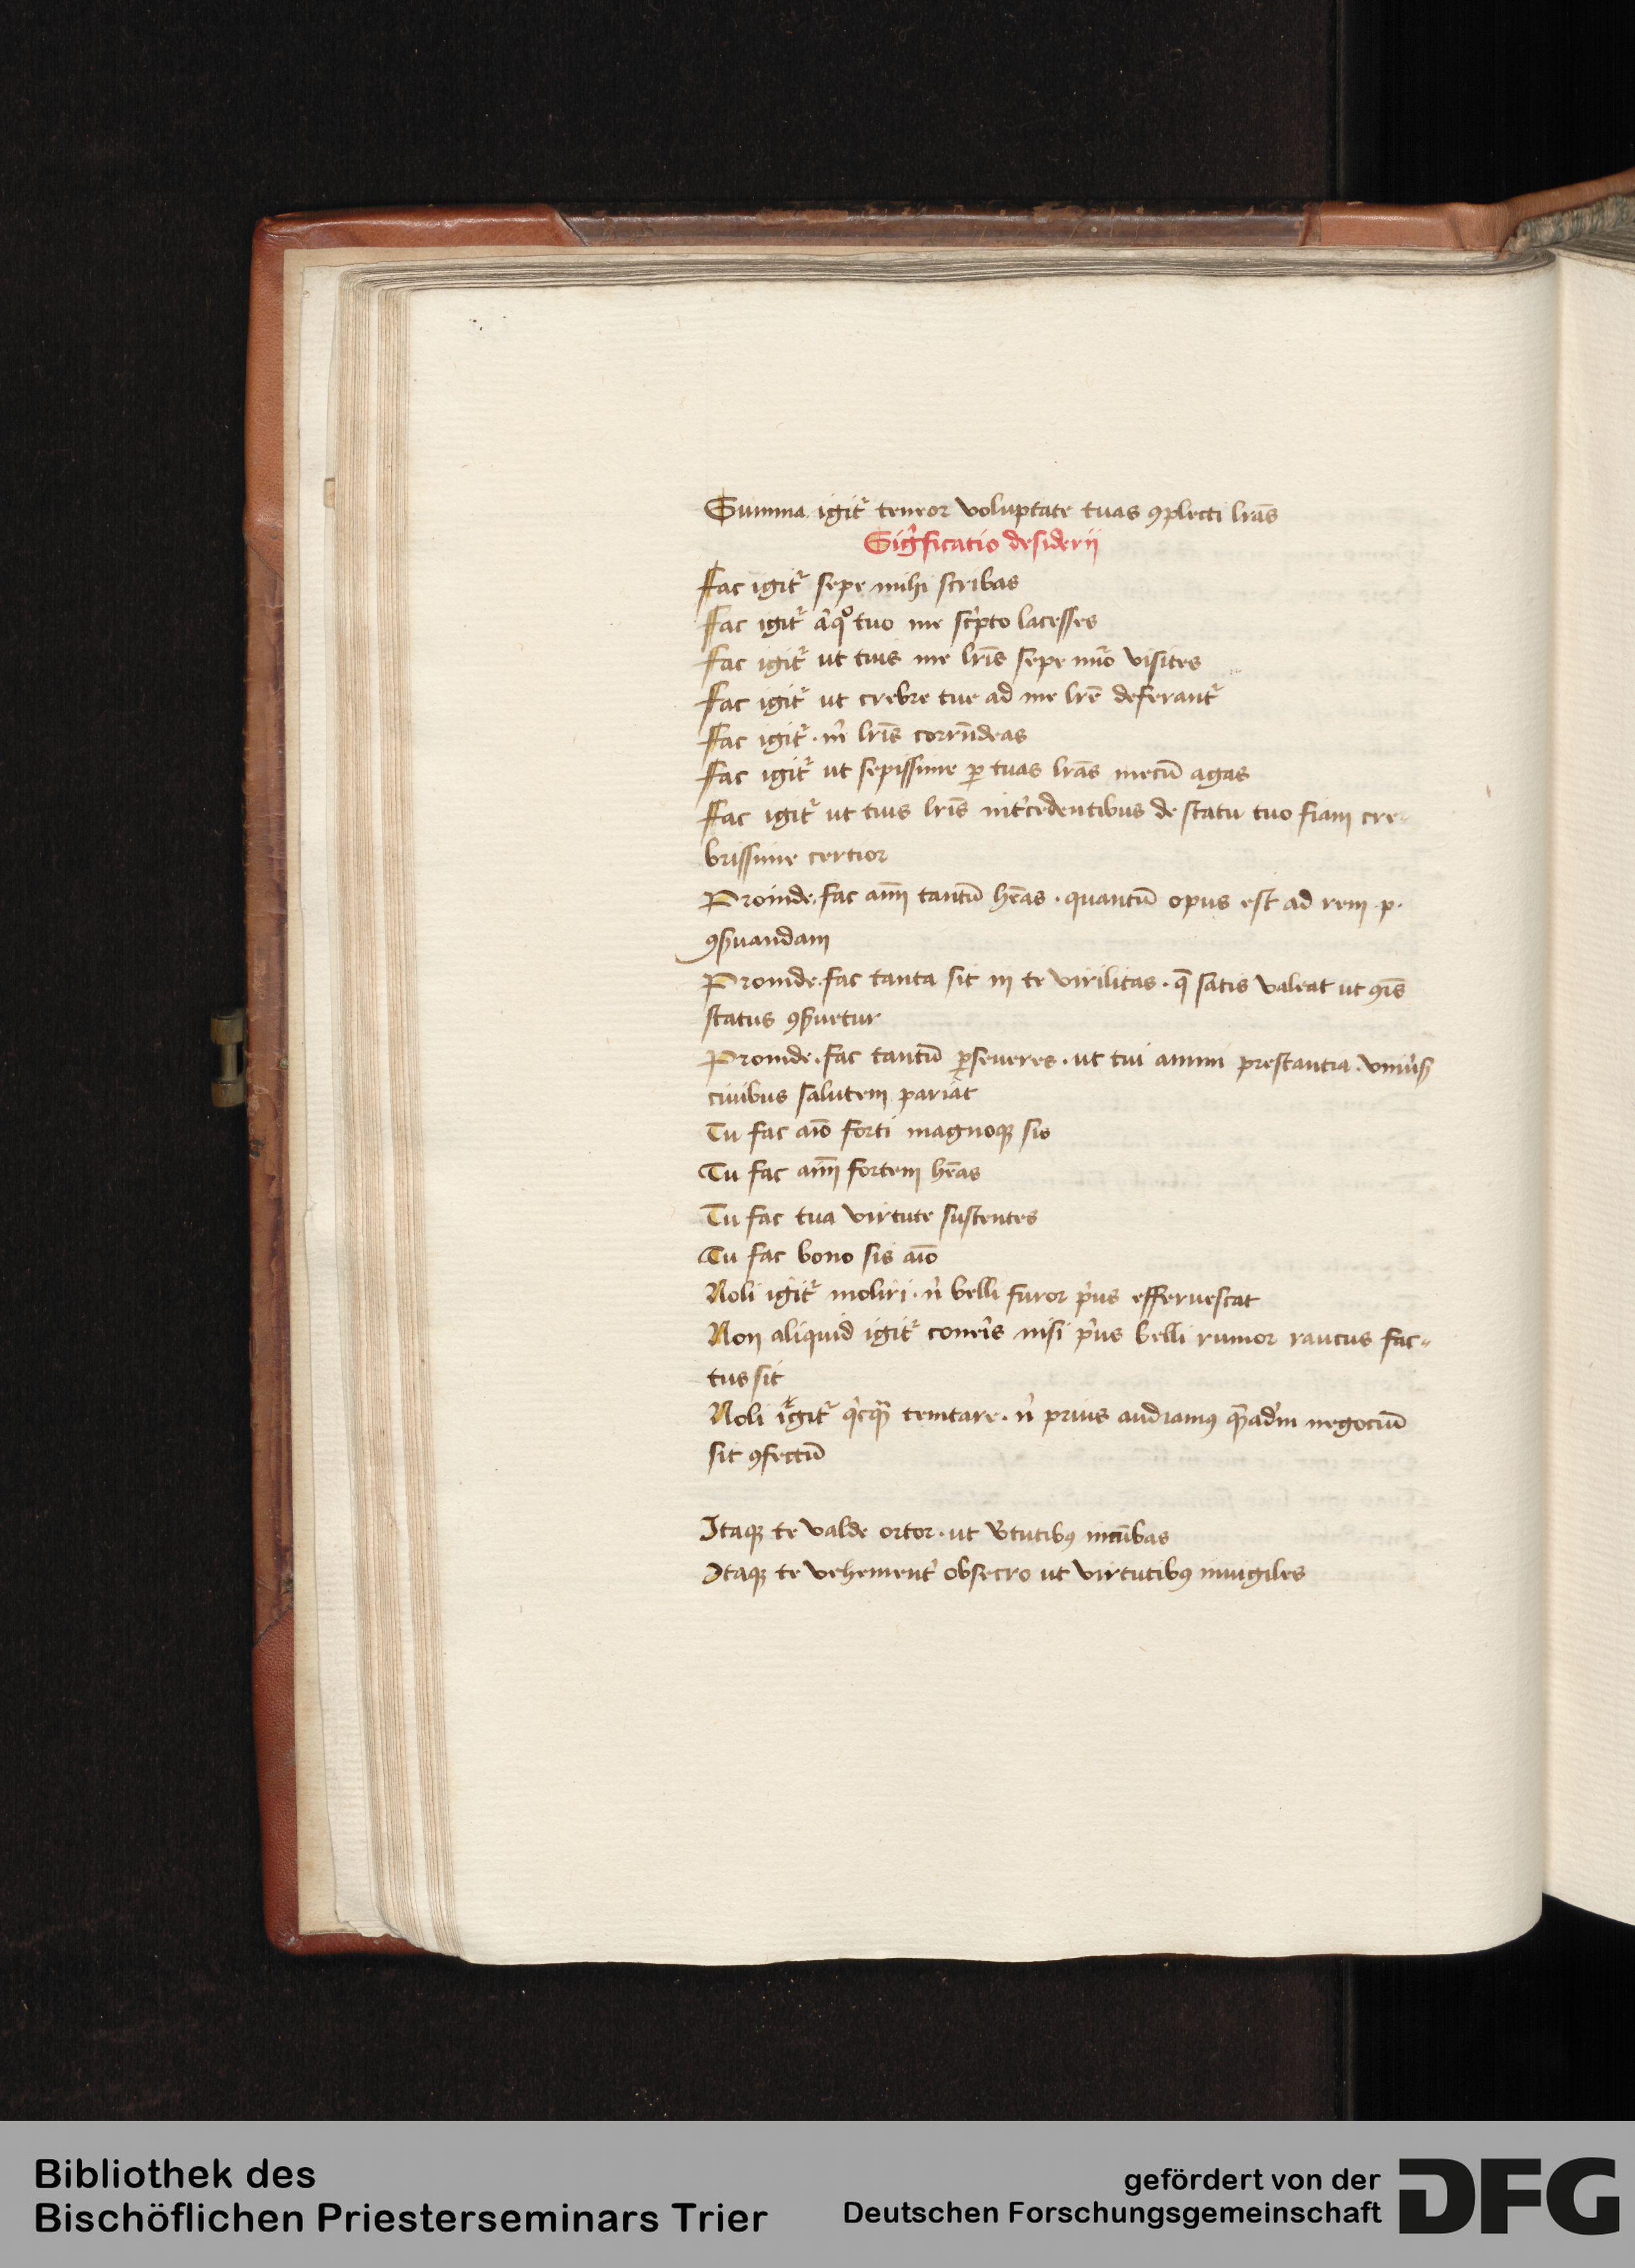 Summa igit᷑ teneor voluptate tuas ꝯplecti lr̄as
Sigͥficatio desiderij
Fac igit᷑ sepe mihi scribas
Fac igit᷑ aͥqͦ tuo me scͥpto lacesses
Fac igit᷑ ut tuis me lr̄is sepe nūo visites
Fac igit᷑ ut crebre tue ad me lr̄e deferant᷑
Fac igit᷑ · mͥ lr̄is corrn̄deas
Fac igit᷑ ut sepissime ꝑ tuas lr̄as mecū agas
Fac igit᷑ ut tuis lr̄is int͛cedentibus de statu tuo fiam cre-
brissime certior
Proinde fac aīm tantū hēas · quantū opus est ad rem · p ·
ꝯẜuandam
Proinde fac tanta sit in te virilitas · q̄ satis valeat ut ꝯīs
status ꝯẜuetur
Proinde · fac tantū ꝑseueres · ut tui animi prestantia · vniu͛ẜ
ciuibus salutem pariat
Tu fac aīo forti magnoqꝫ sis
Tu fac aīm fortem hēas
Tu fac tua virtute sustentes
Tu fac bono sis aīo
Noli igit᷑ moliri · nͥ belli furor pͥus efferuescat
Non aliquid igit᷑ coneris nisi pͥus belli rumor raucus fac-
tus sit
Noli igit᷑ qͥcqᷓ temtare · nͥ prius audiamꝯ qᷓadm̄ negociū
sit ꝯfectū
Itaqꝫ te valde ortor · ut v͛tutibꝯ incūbas
Itaqꝫ te vehement͛ obsecro ut virtutibꝯ inuigiles
Bibliothek des
Bischöflichen Priesterseminars Trier
gefördert von der
Deutschen Forschungsgemeinschaft
DFG